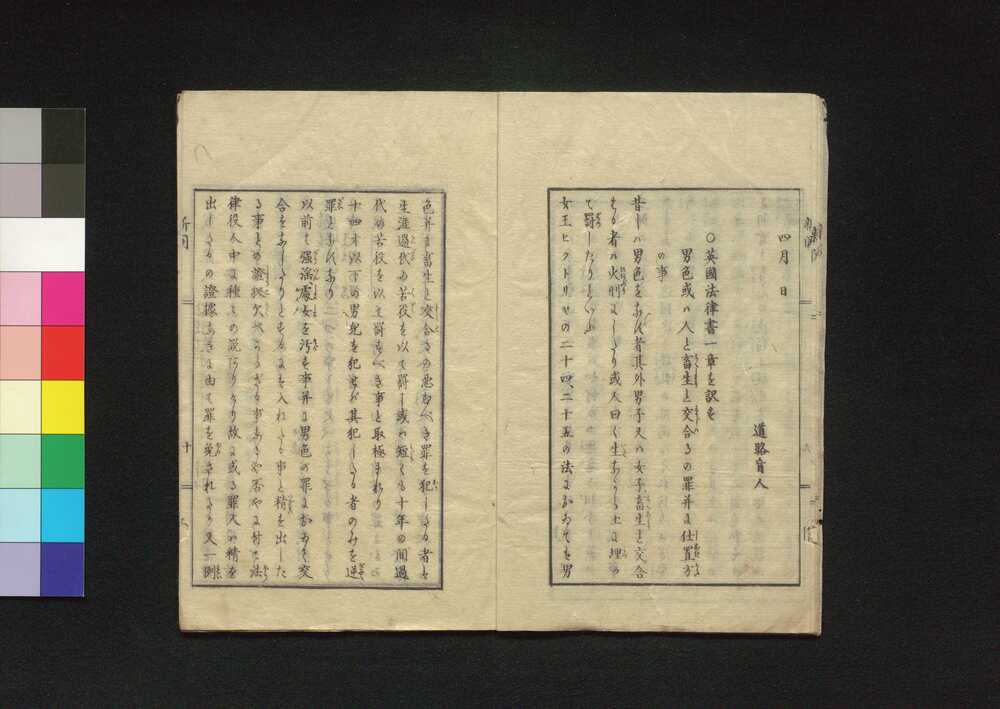 四月 日
道路育人
〇英國法律書一章を訳す
男色或ハ人と畜生と交合するの罪并に仕置方
の事
昔しハ男色をなす者其外男子又ハ女子畜生と交合
する者ハ火刑によりし或人曰く生ながら土に埋め
て罰したりしといふ
女王ヒクトリヤの二十四二十五の法におゐてを男
色并に畜生と交合するの悪むべき罪を犯したる者を
生涯過代の苦役を以て罰し或ハ短くも十年の間過
代の苦役を以て罰すべき事と取極まれり
十四才以下の男兒を犯せバ其犯したる者のみを逆
罪となすなり
以前ハ強淫處女を汚す事并に男色の罪におゐて交
合をなしたりとするにを入れたる事と精を出した
る事との證拠欠べからざる事なるや否やに付て法
律役人中に種々の説ありたり故に或る罪人ハ精を
出したるの證拠なきに由て罪を免されたり又一例
新聞
十